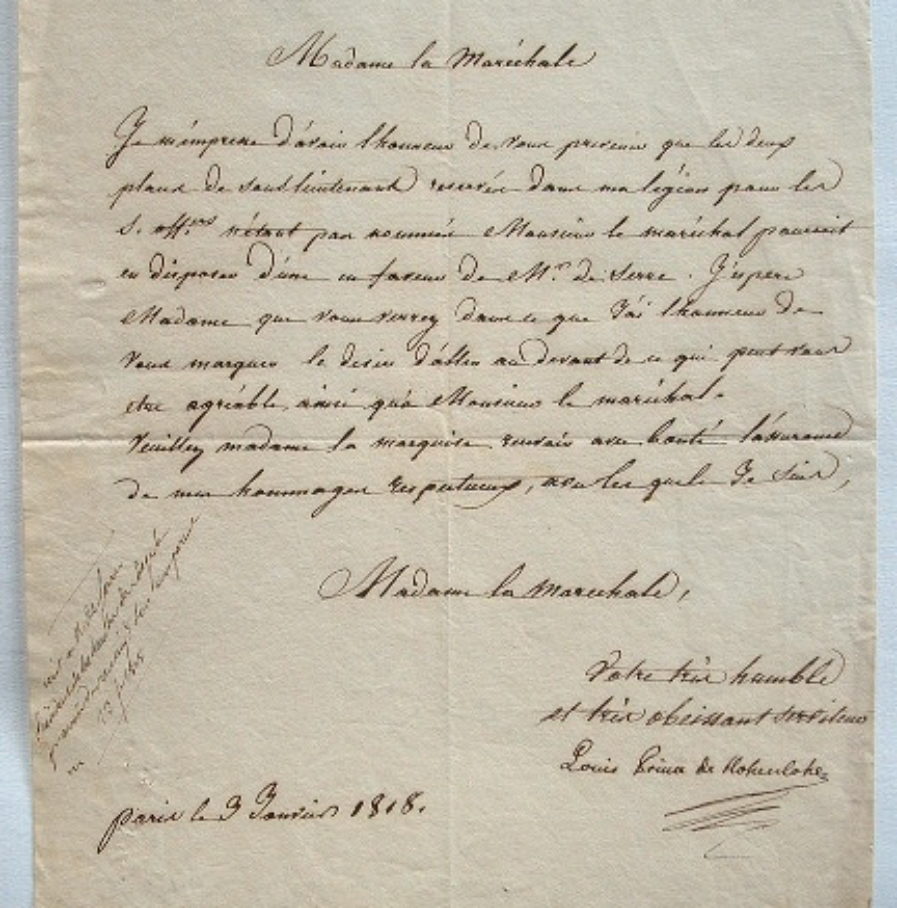 Madame la Maréchale
Je m'empresse d'avoir l'honneur de vous prévenir que les deux
places de sous lieutenant reservées dans ma légion pour les
S. off.ers n'étant pas nommés Monsieur le maréchal pourroit
en disposer d'une en faveur de Mr. de Serre. J'espere
Madame que vous verrez dans ce que J'ai l'honneur de
vous marquer le desir d'aller au devant de ce qui peut vous
etre agréable, ainsi qu'à Monsieur le maréchal.
Veuillez madame la marquise recevoir avec bonté l'assurance
de mes hommages respectueux, avec les quels Je suis,
Madame la Marechale,
Votre très humble
et très obeissant serviteur
Louis Prince de Hohenlohe
paris le 3 Janvier 1818.